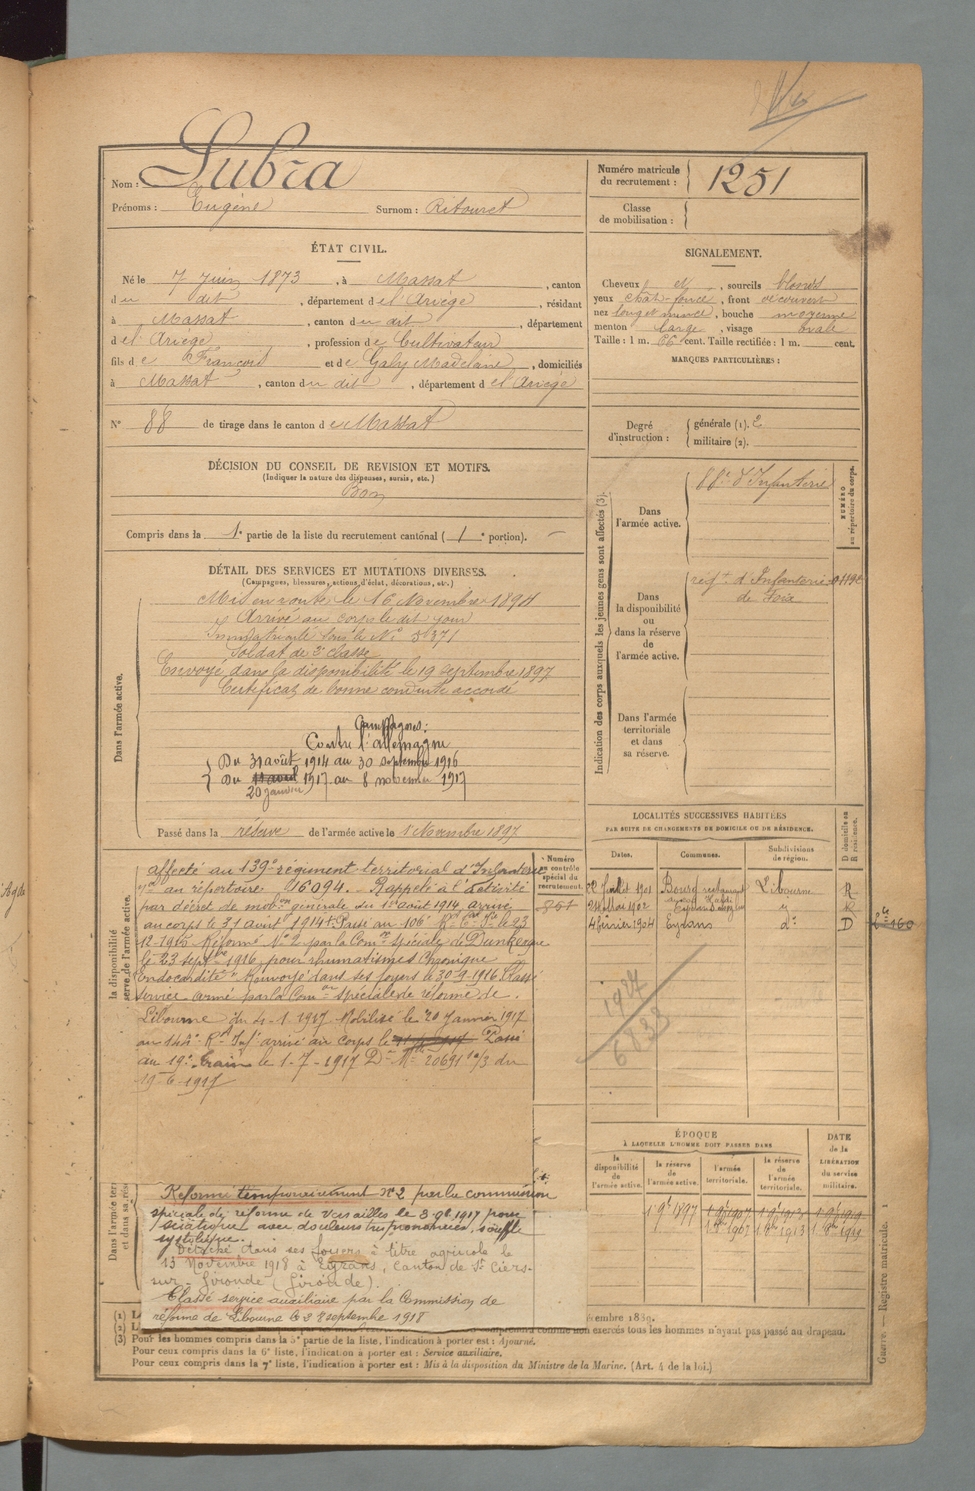 Nom : Lubra
Prénoms : Eugène Surnom : Ritouret
Numéro matricule du recrutement : 1251
Classe de mobilisation :
ÉTAT CIVIL.
Né le 7 Juin 1873, à Massat, canton
du dit, département de l'Ariège, résidant
à Massat, canton du dit, département
de l'Ariège, profession de Cultivateur
fils de François et de Galy Madelaine, domiciliés
à Massat, canton du dit, département de l'Ariège
N° 88 de tirage dans le canton de Massat
DÉCISION DU CONSEIL DE REVISION ET MOTIFS.
(Indiquer la nature des dispenses, sursis, etc.)
Bon
Compris dans la 1e partie de la liste du recrutement cantonal (1e portion).
DÉTAIL DES SERVICES ET MUTATIONS DIVERSES.
(Campagnes, blessures, actions d'éclat, décorations, etc.)
Dans l'armée active.
Mis en route le 16 Novembre 1894
Arrivé au corps le dit jour
Immatriculé sous le N°
Soldat de 2e classe
Envoyé dans la disponibilité le 19 Septembre 1897
Certificat de bonne conduite accordé
Campagnes :
Contre l'allemagne
Du 31 août 1914 au 30 septembre 1916
Du 11 avril 1917 au 8 novembre 1917
20 janvier
Passé dans la réserve de l'armée active le 1 Novembre 1897
affecté au 139e régiment territorial d'Infanterie
au répertoire 16094. Rappelé à l'activité
par décret de mobon générale du 1er août 1914 arrivé
au corps le 31 août 1914. Passé au 106e Rt Tal Ie le 23
12-1915 Réformé N° 2 par la Comon spéciale de Dunkerque
le 23 septbre 1916 pour rhumatismes Chronique
Endocardite. Renvoyé dans ses foyers le 30-9-1916 Classé
service armé par la Comon spéciale de réforme de
Libourne du 4-1 1917 Mobilisé le 20 Janvier 1917
au 144e Rt Infie arrivé au corps le Passé
au 19e Train le 1-7-1917 Don Mlle 20691 10/3 du
19-6-1917
Réformé temporairement N° 2 par la commission
spéciale de réforme de Versailles le 3 9bre 1917 pour
sciatique avec douleurs très prononcées, souffle
systolique.
Détaché dans ses foyers à titre agricole le
13 Novembre 1918 à Eyrans, canton de St Ciers-
sur-Gironde (Gironde).
Classé service auxiliaire par la Commission de
réforme de Libourne le septembre 1918
Numéro au contrôle spécial du recrutement.
SIGNALEMENT.
Cheveux et, sourcils blonds
yeux chât-foncé, front découvert
nez long et mince, bouche moyenne
menton large, visage ovale
Taille : 1 m. 66 cent. Taille rectifiée : 1 m. cent.
MARQUES PARTICULIÈRES :
Degré d'instruction : générale (1). 2
militaire (2).
Indication des corps auxquels les jeunes gens sont affectés (3).
NUMÉRO au répertoire du corps.
Dans l'armée active. 88e d'Infanterie
Dans la disponibilité ou dans la réserve de l'armée active. regt d'Infanterie de Foix
Dans l'armée territoriale et dans sa réserve.
LOCALITÉS SUCCESSIVES HABITÉES
PAR SUITE DE CHANGEMENTS DE DOMICILE OU DE RÉSIDENCE.
Dates. Communes. Subdivisions de région. D domicile ou R résidence.
Juillet 1901 Bourg Libourne R
Mai 1902 R
4 février 1904 Eyrans do D
1927
6833
ÉPOQUE
À LAQUELLE L'HOMME DOIT PASSER DANS
la disponibilité de l'armée active. la réserve de l'armée active. l'armée territoriale. la réserve de l'armée territoriale.
DATE de la LIBÉRATION du service militaire.
1 9bre 1897 1 9bre 1907 1 9bre 1913 1 9bre 1919
cembre 1889.
comme non exercés tous les hommes n'ayant pas passé au drapeau.
(3) Pour les hommes compris dans la 5e partie de la liste, l'indication à porter est : Ajourné.
Pour ceux compris dans la 6e liste, l'indication à porter est : Service auxiliaire.
Pour ceux compris dans la 7e liste, l'indication à porter est : Mis à la disposition du Ministre de la Marine. (Art. 4 de la loi.)
Guerre. — Registre matricule. 1